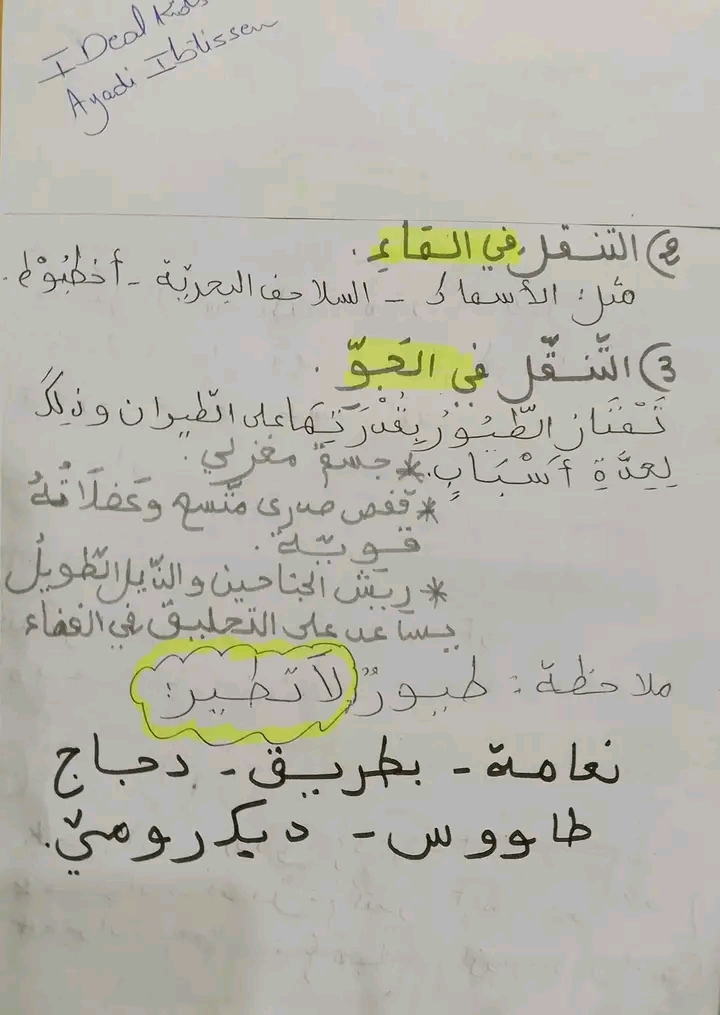 IDeal Kids
Ayadi Ibtissem
2) التنقل في الماءِ.
مثل: الأسماك - السلاحف البحريّة - أخطُبُوْط.
3) التَّنقّل في الجَوّ.
تَمْتَازُ الطّيُوُرُ بِقُدْرَتِهَا على الطّيران وذلِكَ
لِعِدَّةِ أَسْبَابٍ. * جسمٌ مغزلي.
* قفص صدرى متّسع وعَضَلَاتُهُ
قَويّة.
* ريش الجناحين والذّيل الطّويلُ
يساعد على التحليق في الفضاء
ملاحظة: طيورٌ لاَ تَطير:
نعامة - بطريق - دجاج
طاووس - ديك روميّ.